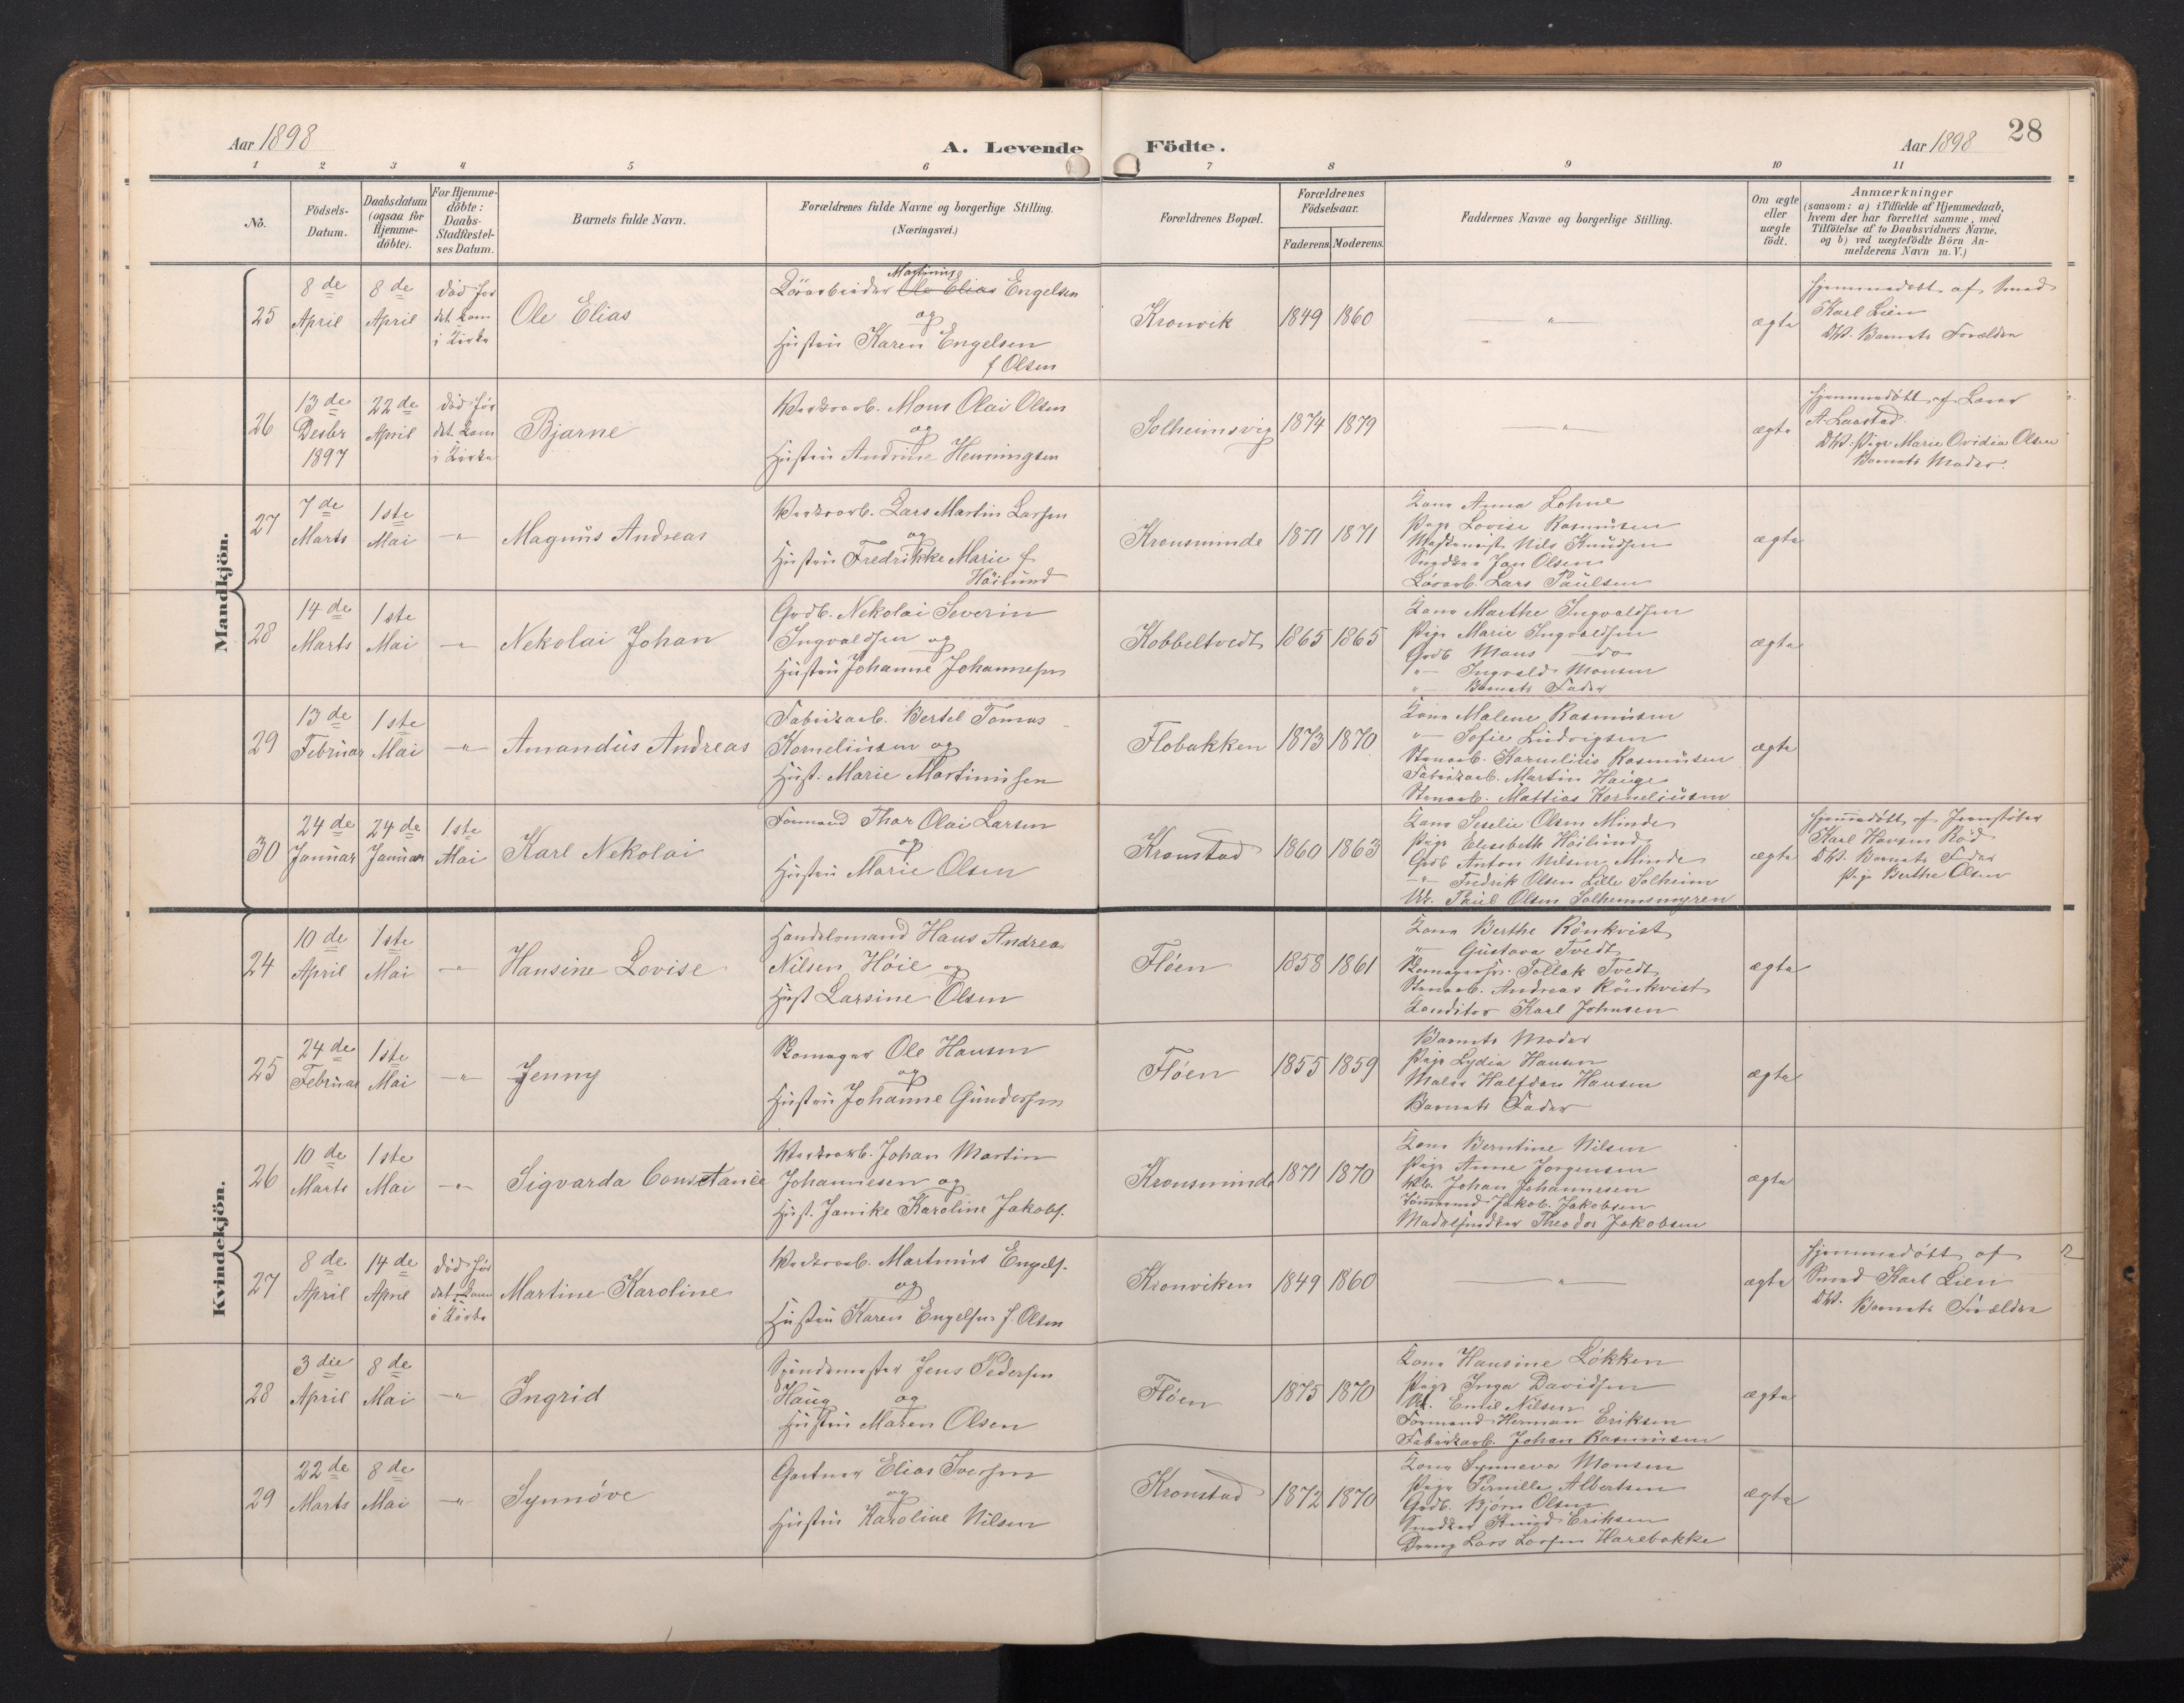 Aar 1898
A. Levende Födte.
Aar 1898
28
1 2 3 4 5 6 7 8 9 10 11
No.
Födsels-Datum.
Daabsdatum (ogsaa for Hjemmedöbte).
For Hjemmedöbte: Daabs-Stadfæstelses Datum.
Barnets fulde Navn.
Forældrenes fulde Navne og borgerlige Stilling.
(Næringsvei.)
Forældrenes Bopæl.
Forældrenes Födselsaar.
Faderens. Moderens.
Faddernes Navne og borgerlige Stilling.
Om ægte eller uægte födt.
Anmærkninger
(saasom: a) i Tilfælde af Hjemmedaab,
hvem der har forrettet samme, med
Tilföielse af to Daabsvidners Navne,
og b) ved uægtefödte Börn Anmelderens Navn m. V.)
Mandkjön.
25
8de April
8de April
död för det kom i Kirke
Ole Elias
Martinus
Ole Elias Engelsen
og
Hustru Karen Engelsen
f Olsen
Kronvik
1849 1860
— " —
ægte
Hjemmedöbt af Smed
Karl Lien
DV. Barnets Forældre
26
13de Desbr 1897
22de April
död för det kom i Kirke
Bjarne
Værksarb. Mons Olai Olsen
og
Hustru Andrine Henningsen
Solheimsvig
1874 1879
— " —
ægte
Hjemmedöbt af Lærer
A. Laastad
DV: Pige Marie Ovidia Olsen
Barnets Moder.
27
7de Marts
1ste Mai
— " —
Magnus Andreas
Værksarb. Lars Martin Larsen
og
Hustru Fredrikke Marie f
Höilund
Kronsminde
1871 1871
Kone Anna Lohne
Pige Lovise Rasmussen
Maskinist Nils Knudsen
Snedker Jan Olsen
Lars Paulsen
ægte
28
14de Marts
1ste Mai
— " —
Nekolai Johan
Grdb. Nekolai Severin
Ingvaldsen og
Hustru Johanne Johannesen
Kobbeltvedt
1865 1865
Kone Marthe Ingvaldsen
Pige Marie Ingvaldsen
Grdb Mons — do
" — Ingvald Monsen
" — Barnets Fader
ægte
29
13de Februar
1ste Mai
— " —
Amandus Andreas
Fabrikarb. Bertel Tomas
Korneliusen og
Hust. Marie Martinusen
Flobakken
1873 1870
Kone Malene Rasmussen
" — Sofie Ludvigsen
Stenarb. Kornelius Rasmussen
Fabrikarb. Martin Hauge
Stenarb. Mattias Korneliusen
ægte
30
24de Januar
24de Januar
1ste Mai
Karl Nekolai
Formand Thor Olai Larsen
og
Hustru Marie Olsen
Kronstad
1860 1863
Kone Seselie Olsen Minde
Pige Elesebeth Höilund
Grdb Anton Nilsen Minde
— " — Fredrik Olsen Lille Solheim
Paul Olsen Solheimsmyren
ægte
Hjemmedöbt af Jernstöber
Karl Hansen Röd
DV. Barnets Fader
Pige Berthe Olsen
Kvindekjön.
24
10de April
1ste Mai
— " —
Hansine Lovise
Handelsmand Hans Andreas
Nilsen Höie og
Hust Larsine Olsen
Flöen
1858 1861
Kone Berthe Rönkvist
" — Gustava Tvedt
Tollak Tvedt
Stenarb. Andreas Rönkvist
Konditor Karl Johnsen
ægte
25
24de Februar
1ste Mai
— " —
Jenny
Skomager Ole Hansen
og
Hustru Johanne Gundersen
Flöen
1855 1859
Barnets Moder
Pige Lydia Hansen
Maler Halfdan Hansen
Barnets Fader
ægte
26
10de Marts
1ste Mai
— " —
Sigvarda Constance
Værksarb. Johan Martin
Johannesen og
Hust. Janike Karoline Jakobs.
Kronsminde
1871 1870
Kone Berntine Nilsen
Pige Anne Jorgensen
Johan Johannesen
Tömmermd Jakob Jakobsen
Modelsnedker Theodor Jakobsen
ægte
27
8de April
14de April
död för det kom i Kirke
Martine Karoline
Værksarb. Martinus Engels.
og
Hustru Karen Engelsen f. Olsen
Kronviken
1849 1860
— " —
ægte
Hjemmedöbt af
Smed Karl Lien
DV. Barnets Forældre
28
3die April
8de Mai
— " —
Ingrid
Spindemester Jens Pedersen
Haug og
Hustru Maren Olsen
Flöen
1875 1870
Kone Hansine Lökken
Pige Inga Davidsen
Emil Nilsen
Formand Herman Eriksen
Fabrikarb. Johan Rasmussen
ægte
29
22de Marts
8de Mai
— " —
Synnöve
Gartner Elias Iversen
og
Hustru Karoline Nilsen
Kronstad
1872 1870
Kone Synneva Monsen
Pige Pernille Albertsen
Grdb. Björn Olsen
Snedker Knud Eriksen
Dreng Lars Larsen Harebakke
ægte